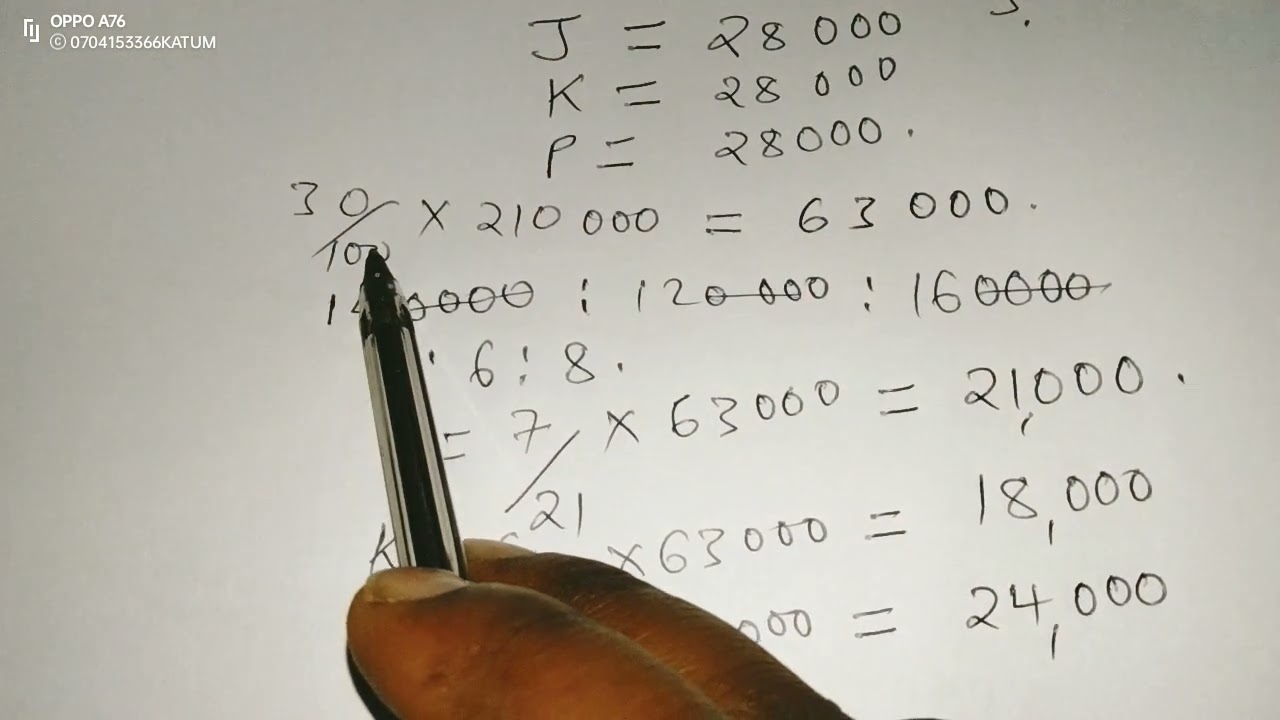 OPPO A76
© 0704153366KATUM
J = 28 000
K = 28 000
P = 28000.
30/100 × 210 000 = 63 000.
000 : 120 000 : 160000
: 6 : 8.
= 7/21 × 63000 = 21,000.
K × 63000 = 18,000
000 = 24,000